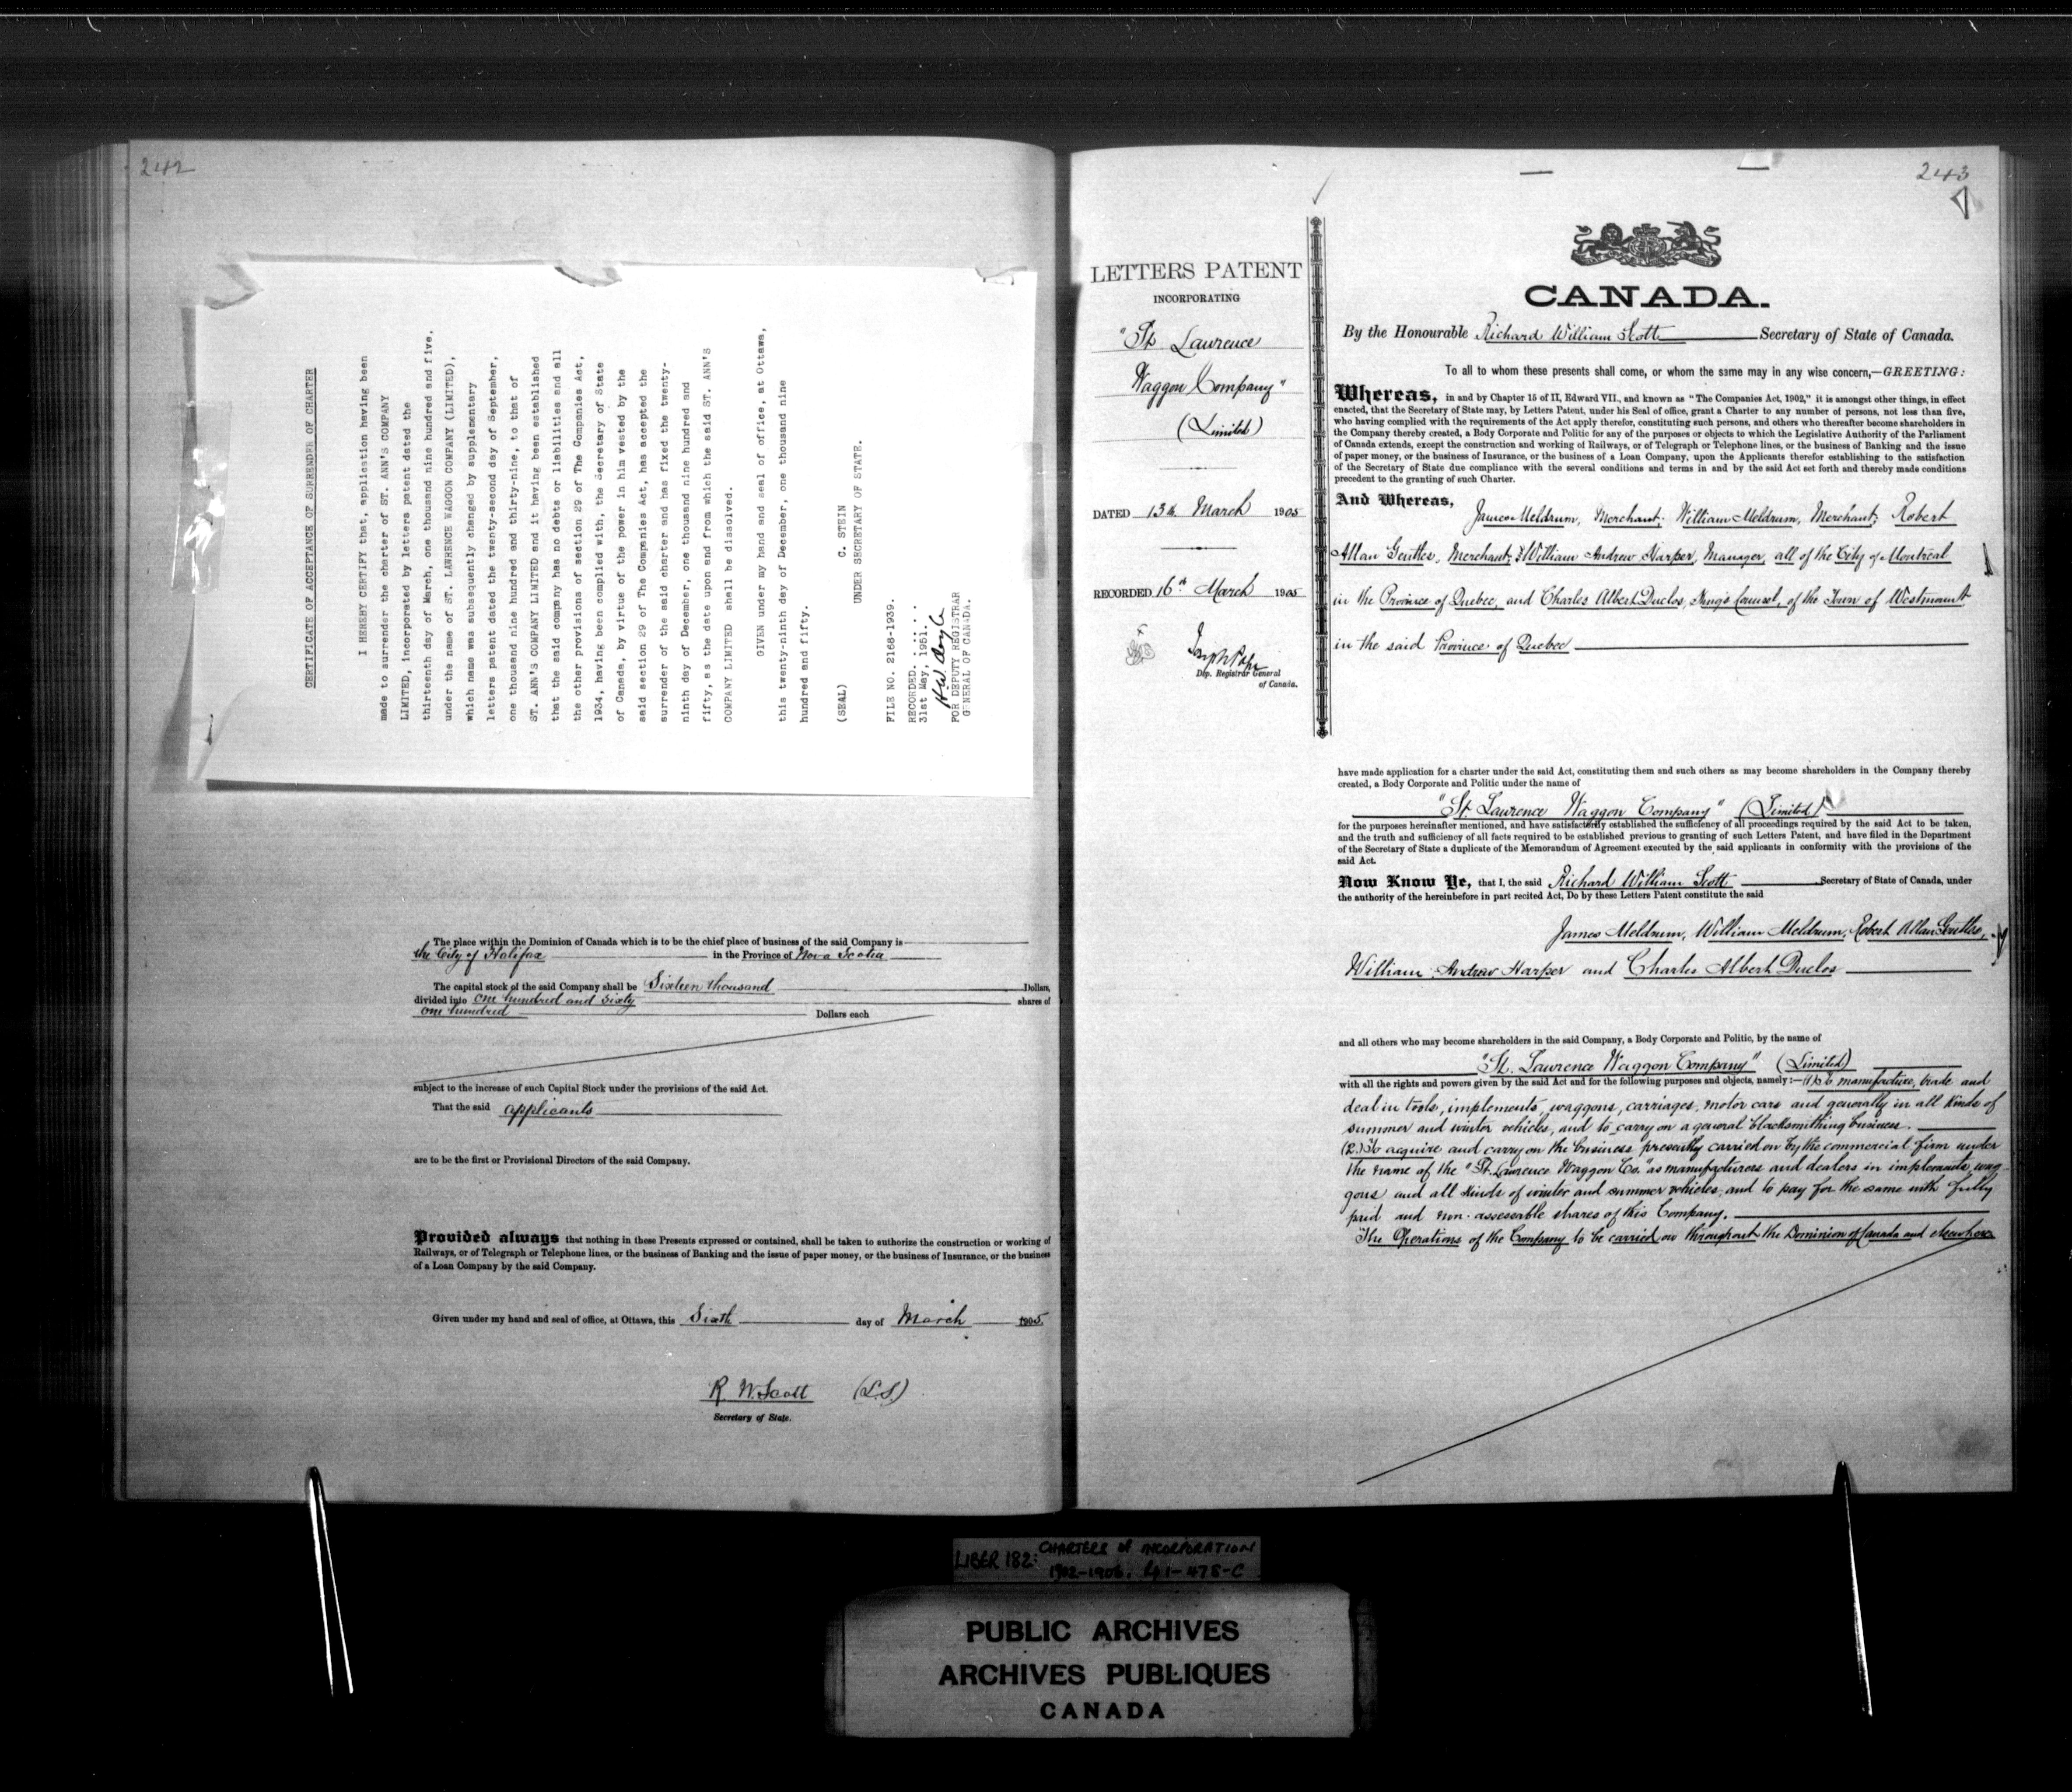 242
CERTIFICATE OF ACCEPTANCE OF SURRENDER OF CHARTER
I HEREBY CERTIFY that, application having been
made to surrender the charter of ST. ANN'S COMPANY
LIMITED, incorporated by letters patent dated the
thirteenth day of March, one thousand nine hundred and five,
under the name of ST. LAWRENCE WAGGON COMPANY (LIMITED),
which name was subsequently changed by supplementary
letters patent dated the twenty-second day of September,
one thousand nine hundred and thirty-nine, to that of
ST. ANN'S COMPANY LIMITED and it having been established
that the said company has no debts or liabilities and all
the other provisions of section 29 of The Companies Act,
1934, having been complied with, the Secretary of State
of Canada, by virtue of the power in him vested by the
said section 29 of The Companies Act, has accepted the
surrender of the said charter and has fixed the twenty-
ninth day of December, one thousand nine hundred and
fifty, as the date upon and from which the said ST. ANN'S
COMPANY LIMITED shall be dissolved.
GIVEN under my hand and seal of office, at Ottawa,
this twenty-ninth day of December, one thousand nine
hundred and fifty.
(SEAL) C. STEIN
UNDER SECRETARY OF STATE.
FILE NO. 2168-1939.
RECORDED.
31st May, 1951.
FOR DEPUTY REGISTRAR
GENERAL OF CANADA.
The place within the Dominion of Canada which is to be the chief place of business of the said Company is
the City of Halifax in the Province of Nova Scotia
The capital stock of the said Company shall be Sixteen thousand Dollars,
divided into one hundred and sixty shares of
one hundred Dollars each
subject to the increase of such Capital Stock under the provisions of the said Act.
That the said applicants
are to be the first or Provisional Directors of the said Company.
Provided always that nothing in these Presents expressed or contained, shall be taken to authorize the construction or working of
Railways, or of Telegraph or Telephone lines, or the business of Banking and the issue of paper money, or the business of Insurance, or the business
of a Loan Company by the said Company.
Given under my hand and seal of office, at Ottawa, this Sixth day of March 1905
R. W. Scott (L.S)
Secretary of State.
243
LETTERS PATENT
INCORPORATING
"St. Lawrence
Waggon Company"
(Limited)
DATED 13th March 1905
RECORDED 16th March 1905
Joseph Pope
Dep. Registrar General
of Canada.
CANADA.
By the Honourable Richard William Scott Secretary of State of Canada.
To all to whom these presents shall come, or whom the same may in any wise concern,—GREETING:
Whereas, in and by Chapter 15 of II, Edward VII., and known as "The Companies Act, 1902," it is amongst other things, in effect
enacted, that the Secretary of State may, by Letters Patent, under his Seal of office, grant a Charter to any number of persons, not less than five,
who having complied with the requirements of the Act apply therefor, constituting such persons, and others who thereafter become shareholders in
the Company thereby created, a Body Corporate and Politic for any of the purposes or objects to which the Legislative Authority of the Parliament
of Canada extends, except the construction and working of Railways, or of Telegraph or Telephone lines, or the business of Banking and the issue
of paper money, or the business of Insurance, or the business of a Loan Company, upon the Applicants therefor establishing to the satisfaction
of the Secretary of State due compliance with the several conditions and terms in and by the said Act set forth and thereby made conditions
precedent to the granting of such Charter.
And Whereas,
James Meldrum, Merchant; William Meldrum, Merchant; Robert
Allan Merchant; & William Andrew Harper, Manager, all of the City of Montreal
in the Province of Quebec, and Charles Albert Duclos, King's Counsel, of the Town of Westmount
in the said Province of Quebec
have made application for a charter under the said Act, constituting them and such others as may become shareholders in the Company thereby
created, a Body Corporate and Politic under the name of
"St. Lawrence Waggon Company" (Limited)
for the purposes hereinafter mentioned, and have satisfactorily established the sufficiency of all proceedings required by the said Act to be taken,
and the truth and sufficiency of all facts required to be established previous to granting of such Letters Patent, and have filed in the Department
of the Secretary of State a duplicate of the Memorandum of Agreement executed by the said applicants in conformity with the provisions of the
said Act.
Now Know Ye, that I, the said Richard William Scott Secretary of State of Canada, under
the authority of the hereinbefore in part recited Act, Do by these Letters Patent constitute the said
James Meldrum, William Meldrum, Robert Allan
William Andrew Harper and Charles Albert Duclos
and all others who may become shareholders in the said Company, a Body Corporate and Politic, by the name of
"St. Lawrence Waggon Company" (Limited)
with all the rights and powers given by the said Act and for the following purposes and objects, namely:—(1) To manufacture, trade and
deal in tools, implements, waggons, carriages, motor cars and generally in all kinds of
summer and winter vehicles, and to carry on a general blacksmithing business.
(2) To acquire and carry on the business presently carried on by the commercial firm under
the name of the "St. Lawrence Waggon Co." as manufacturers and dealers in implements, wag-
gons and all kinds of winter and summer vehicles, and to pay for the same with fully
paid and non-assessable shares of this Company.
The Operations of the Company to be carried on throughout the Dominion of Canada and elsewhere
LIBER 182: CHARTERS of INCORPORATION
1902-1906.
PUBLIC ARCHIVES
ARCHIVES PUBLIQUES
CANADA